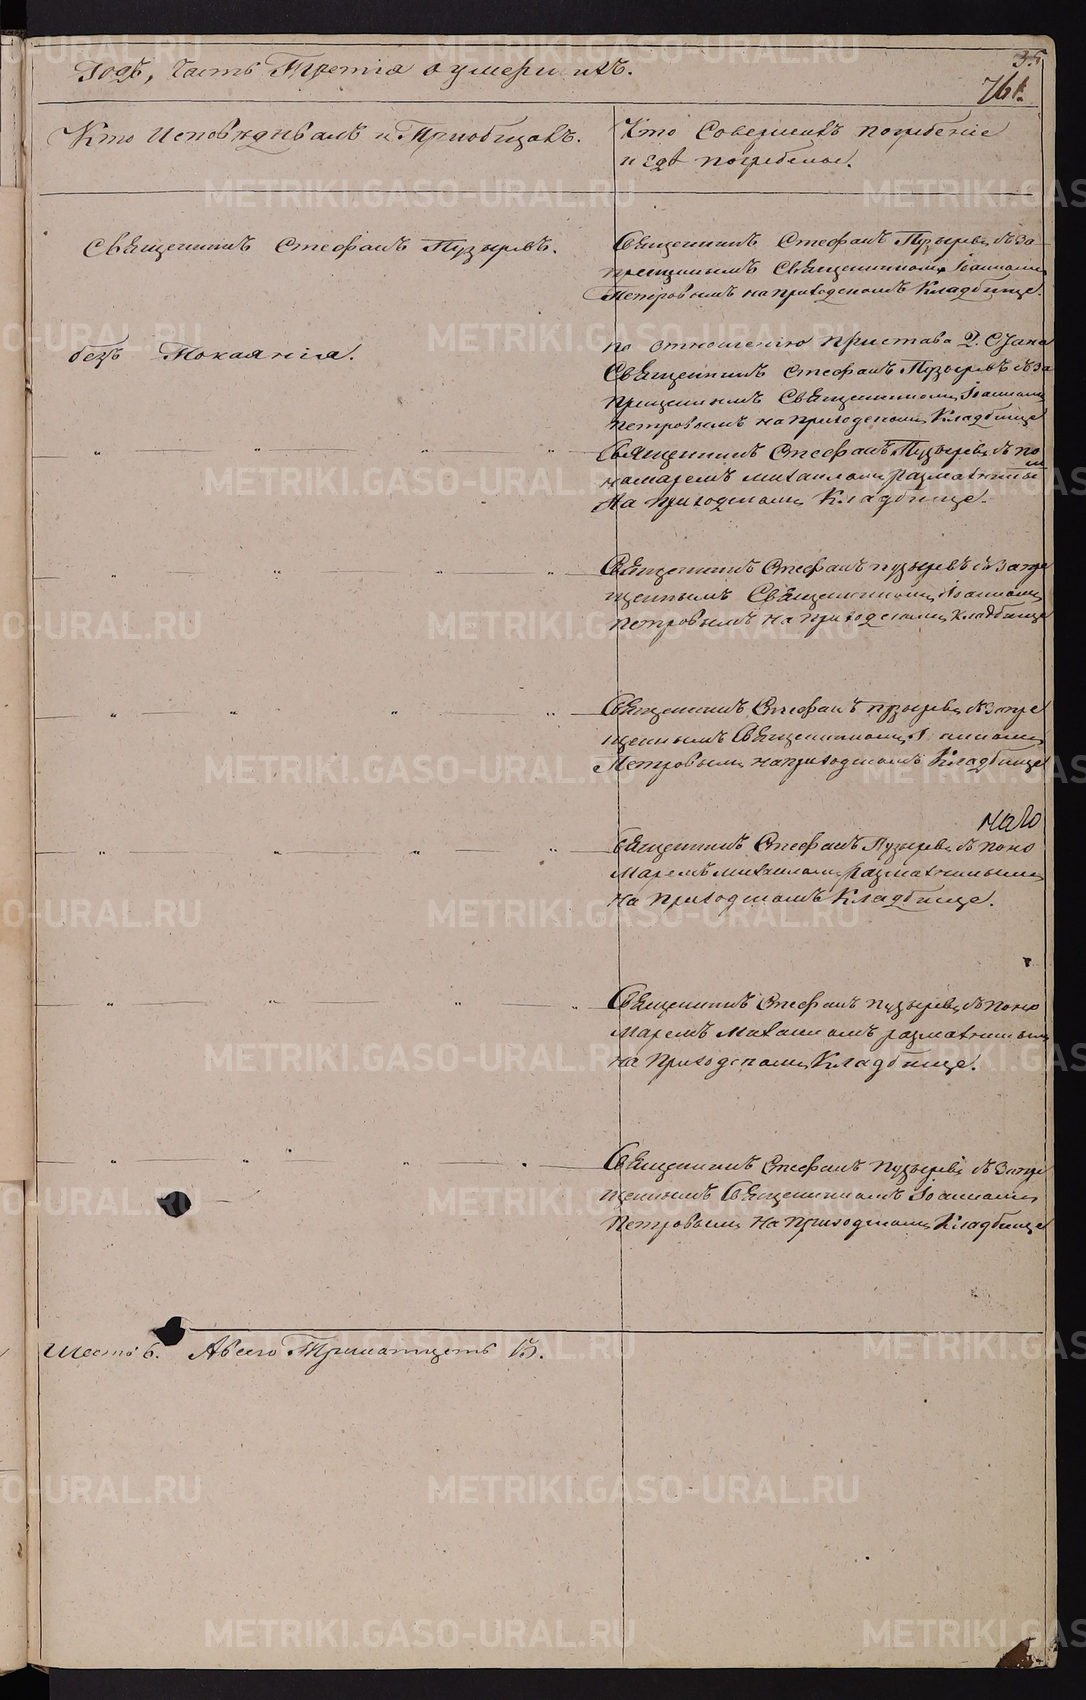 Годъ, Часть Третія о умершихъ.
35
761.
Кто Исповѣдывалъ и Пріобщалъ.
Кто Совершалъ погребеніе
и гдѣ погребены.
Священникъ Стефанъ Пузыревъ.
Священникъ Стефанъ Пузыревъ съ за
прещеннымъ Священникомъ Іоанномъ
Петровымъ на приходскомъ Кладбище.
безъ Покаянія.
по отношенію пристава 2. Стана
Священникъ Стефанъ Пузыревъ съ за
прещеннымъ Священникомъ Іоанномъ
Петровымъ на приходскомъ Кладбище
Священникъ Стефанъ Пузыревъ съ по
номаремъ Михаиломъ
на приходскомъ Кладбище.
Священникъ Стефанъ Пузыревъ съ запре
щеннымъ Священникомъ Іоанномъ
Петровымъ на приходскомъ Кладбище
Священникъ Стефанъ Пузыревъ съ запре
щеннымъ Священникомъ Іоанномъ
Петровымъ на приходскомъ Кладбище
Священникъ Стефанъ Пузыревъ съ поно
маремъ Михаиломъ
на Приходскомъ Кладбище.
Священникъ Стефанъ Пузыревъ съ поно
маремъ Михаиломъ
на Приходскомъ Кладбище.
Священникъ Стефанъ Пузыревъ съ запре
щеннымъ Священникомъ Іоанномъ
Петровымъ на Приходскомъ Кладбище
Шесть 6. А всего Тринатцеть 13.
METRIKI.GASO-URAL.RU